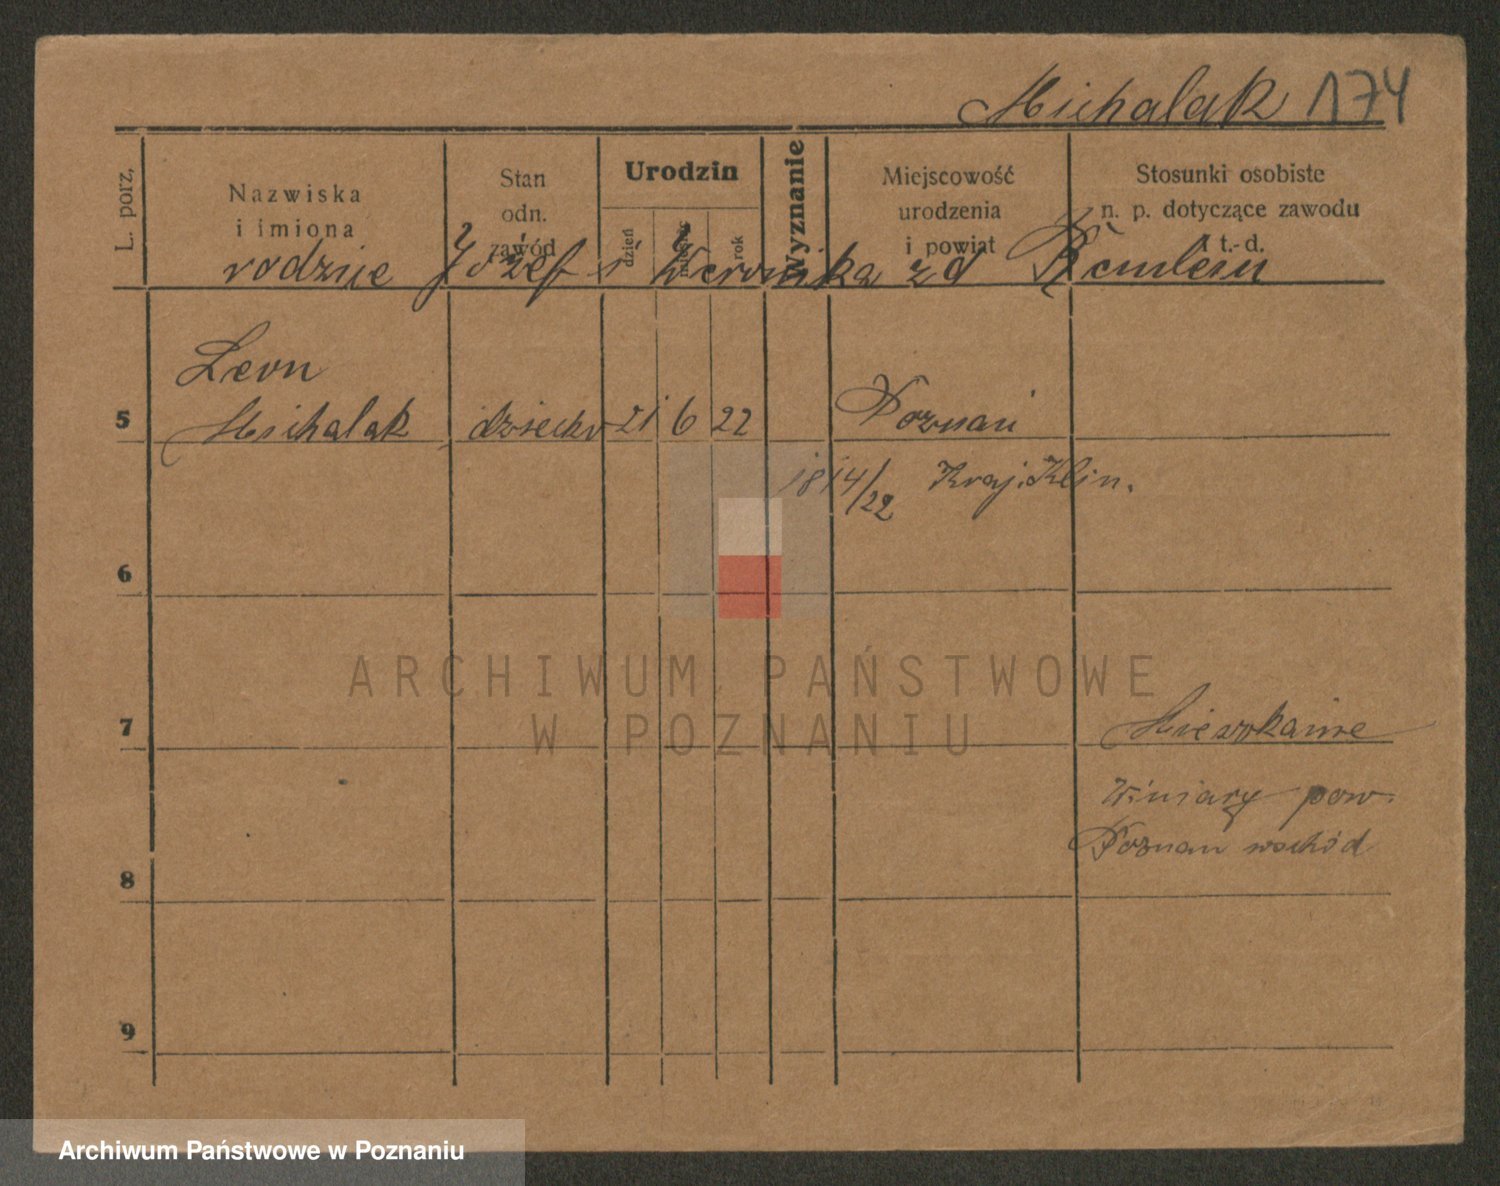 Michalak 174
L. porz.
Nazwiska
i imiona
Stan
odn.
zawód
Urodzin
dzień
miesiąc
rok
Wyznanie
Miejscowość
urodzenia
i powiat
Stosunki osobiste
n. p. dotyczące zawodu
i t.- d.
rodzice Józef i Weronika zd
Leon
5 Michalak dziecko 21 6 22 Poznań
1814/22 Kraj. Klin.
6
7 Mieszkanie
Winiary pow.
Poznań wschód
8
9
ARCHIWUM PAŃSTWOWE
W POZNANIU
Archiwum Państwowe w Poznaniu